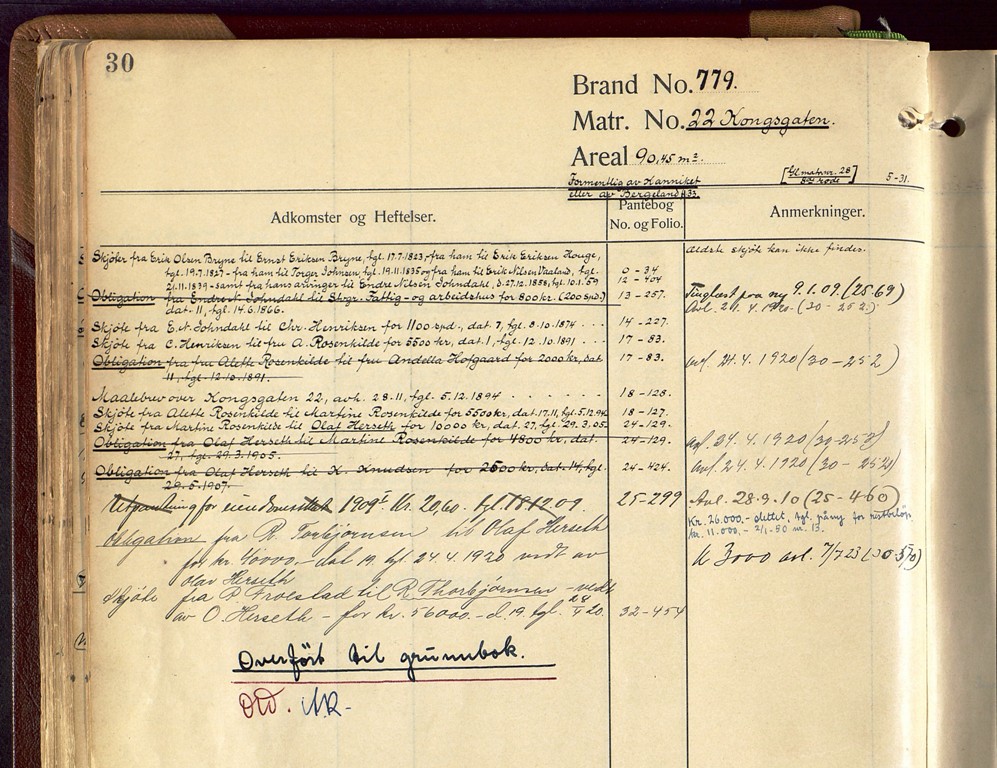 30
Brand No. 779.
Matr. No. 22 Kongsgaten.
Areal 90,45 m².
Formentlig av Kanniket
eller av Bergeland A33.
[Gl. matrnr. 28
8de rode]
5-31.
Adkomster og Heftelser.
Pantebog
No. og Folio.
Anmerkninger.
Ældste skjøte kan ikke findes.
Skjøter fra Erik Olsen Bryne til Ernst Eriksen Bryne, tgl. 17.7.1823, fra ham til Erik Eriksen Houge,
tgl. 19.7.1827 - fra ham til Torger Johnsen, tgl. 19.11.1835 og fra ham til Erik Nilsen Vaaland, tgl. 0 - 34.
21.11.1839 - samt fra hans arvinger til Endre Nilsen Johndahl, d. 27.12.1858, tgl. 10.1.59 12 - 404
Obligation fra Endre N. Johndahl til Stvgr. Fattig- og arbeidshus for 800 kr. (200 spd.) 13 - 257. Tinglæst paa ny 9.1.09. (25-69)
dat. 11, tgl. 14.6.1866. Avl. 24.4.1920 (30 - 252)
Skjøte fra E. N. Johndahl til Chr. Henriksen for 1100 spd., dat. 7, tgl. 8.10.1874 . . . 14 - 227.
Skjøte fra C. Henriksen til fru A. Rosenkilde for 5500 kr, dat. 1, tgl. 12.10.1891 . . . 17 - 83.
Obligation fra fru Alette Rosenkilde til fru Andella Hofgaard for 2000 kr, dat. 17 - 83. avl. 24.4.1920 (30 - 252)
11, tgl. 12.10.1891.
Maalebrev over Kongsgaten 22, avh. 28.11, tgl. 5.12.1894 . . . . . . . 18 - 128.
Skjøte fra Alette Rosenkilde til Martine Rosenkilde for 5500 kr, dat. 17.11, tgl. 5.12.94 18 - 127.
Skjøte fra Martine Rosenkilde til Olaf Herseth for 10000 kr, dat. 27, tgl. 29.3.05. 24 - 129.
Obligation fra Olaf Herseth til Martine Rosenkilde for 4800 kr, dat. 24 - 129. avl. 24.4.1920 (30-252)
27, tgl. 29.3.1905.
Obligation fra Olaf Herseth til K. Knudsen for 2500 kr, dat. 14, tgl. 24 - 424. avl. 24.4.1920 (30 - 252)
29.5.1907.
Utpantning for eiendomsskat 1909 Kr. 20,60. tgl. 18.12.09. 25-299 Avl. 28.9.10 (25-460)
Kr. 26.000,- slettet, tgl. påny for restbeløp
Kr. 11.000,- 2/1-50 nr. 13.
Obligation fra R. Torbjørnsen til Olaf Herseth
for kr. 40000,- dat 19. tgl. 24.4.1920 vedt av Kr 3000 avl. 7/7 23
Olav Herseth
Skjøte fra P. Froestad til R. Thorbjørnsen - vedt.
av O. Herseth - for kr. 56000.- d. 19. tgl. 24/4 20. 32-454
Overført til grunnbok.